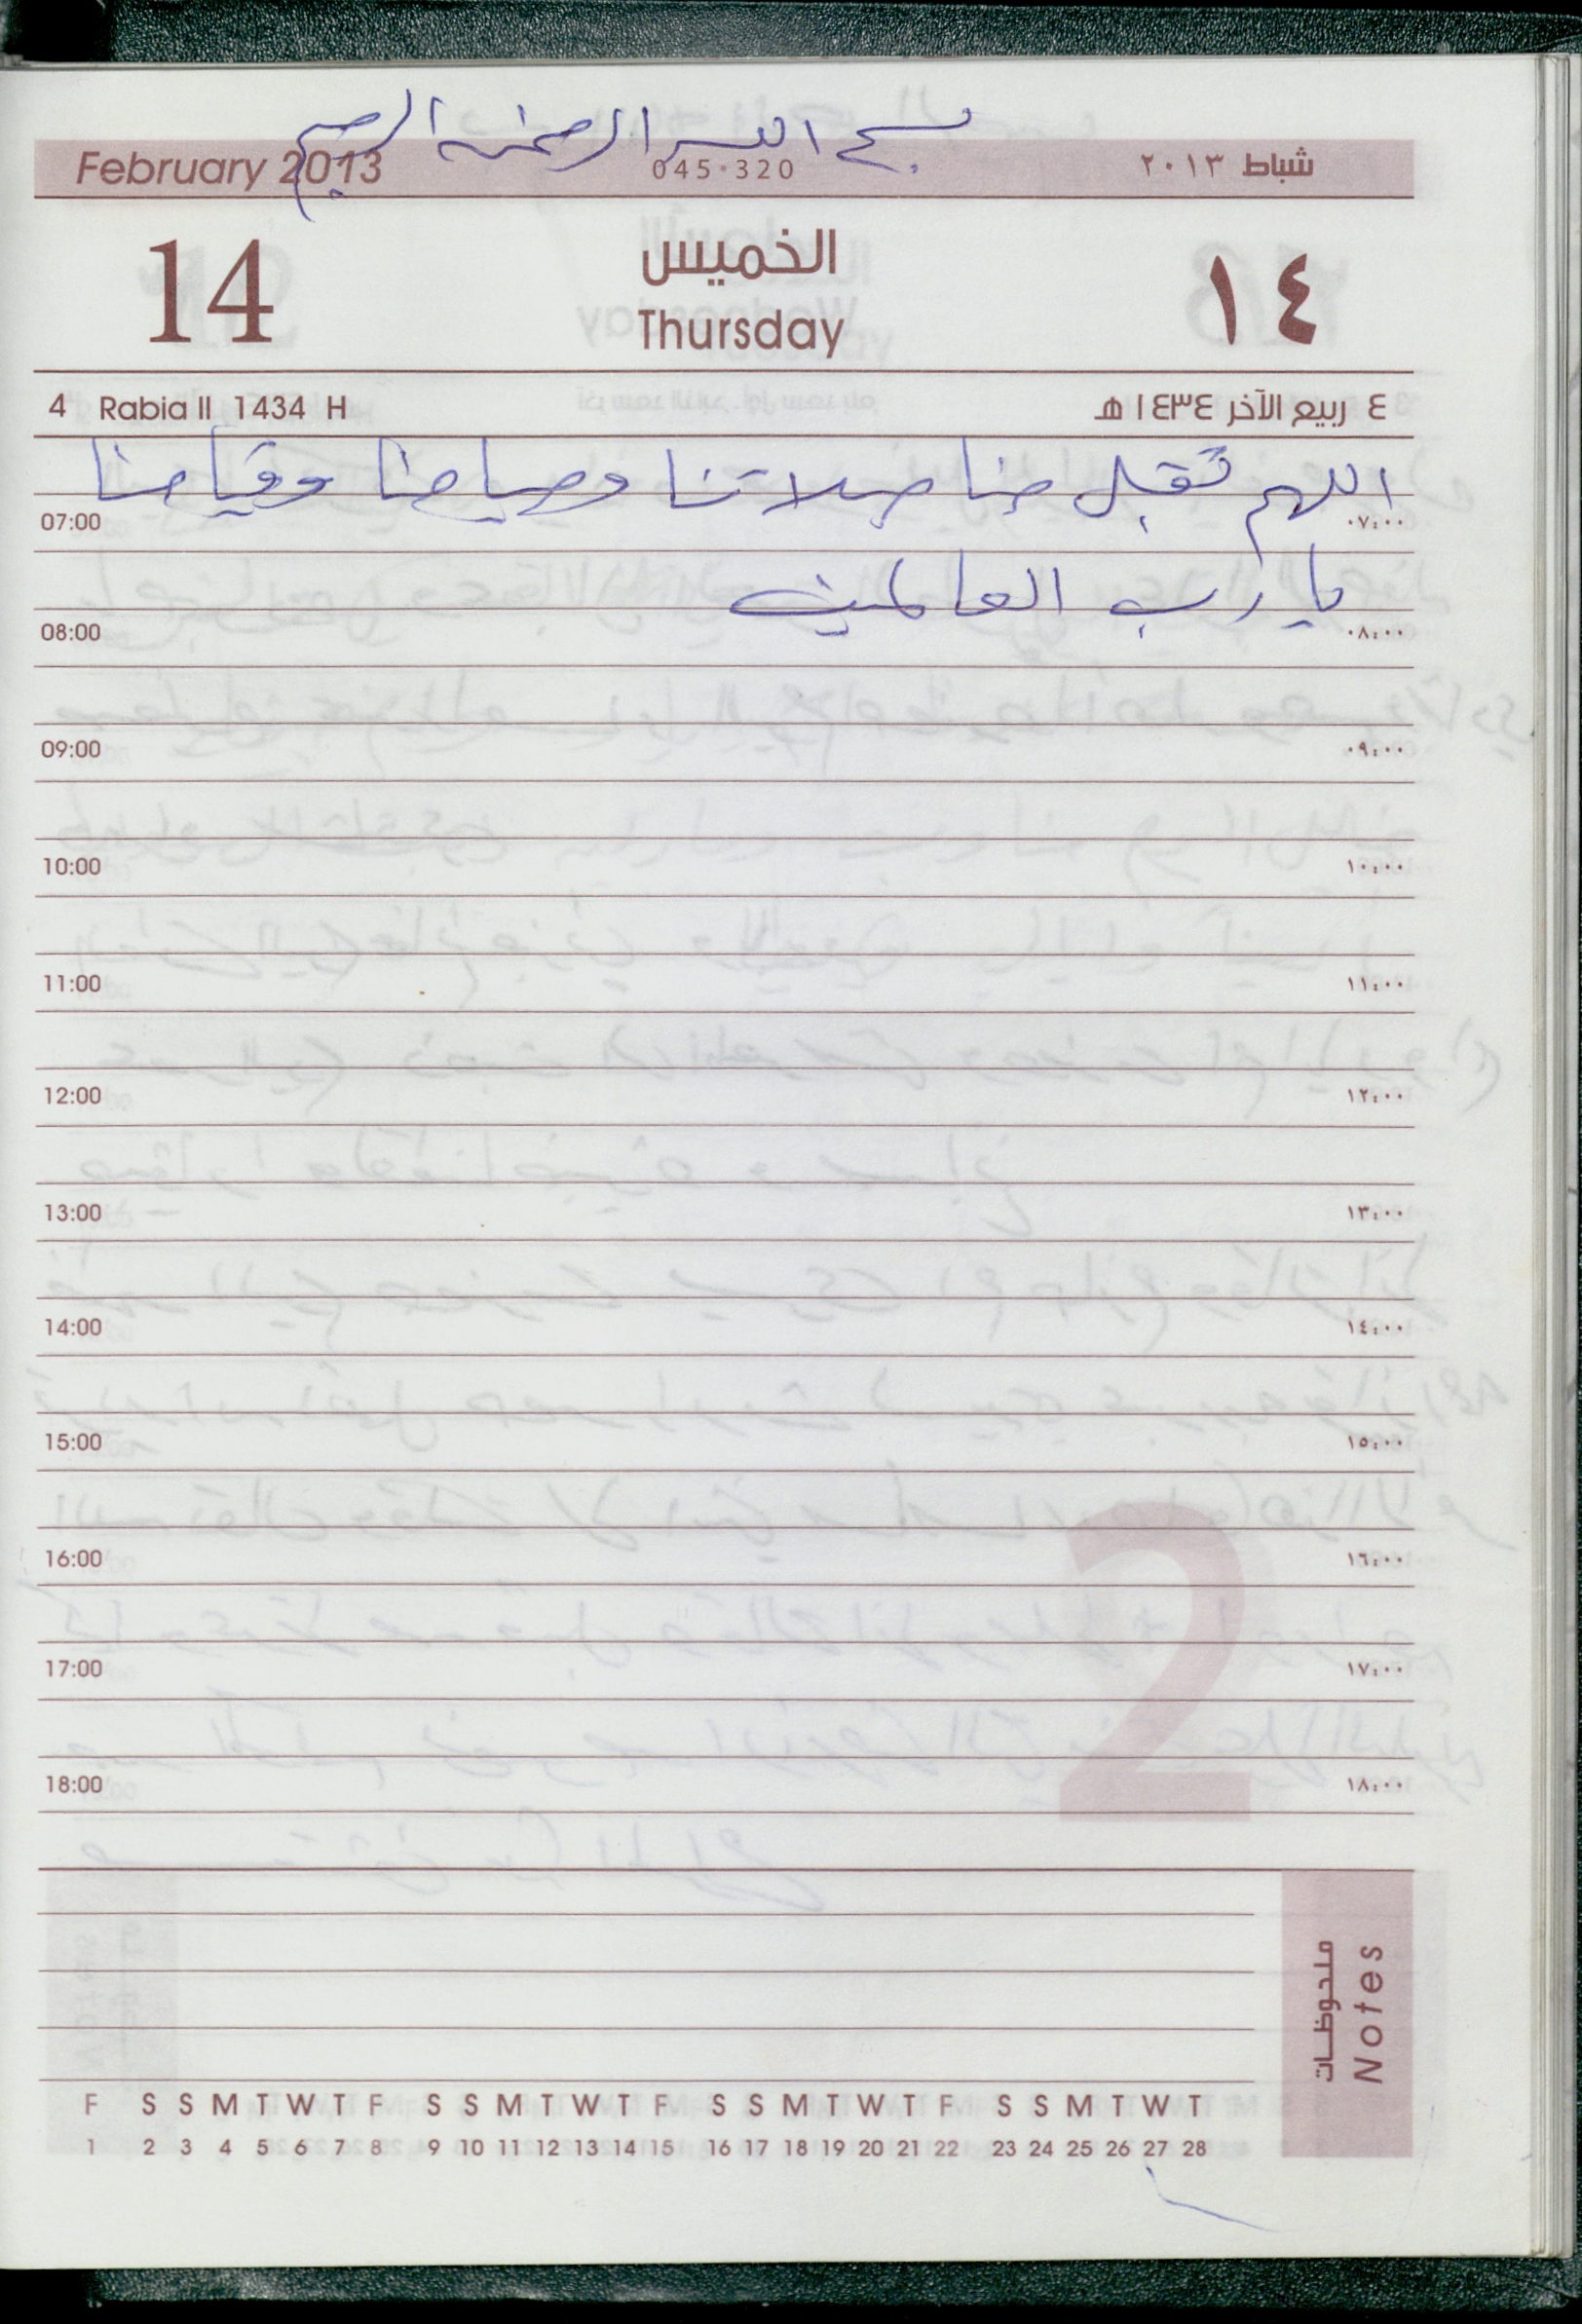 بسم الله الرحمن الرحيم
February 2013 045-320 شباط ٢٠١٣
14 الخميس ١٤
Thursday
4 Rabia II 1434 H ٤ ربيع الآخر ١٤٣٤ هـ
اللهم تقبل منا صلاتنا وصيامنا وقيامنا
07:00 ٠٧:٠٠
يا رب العالمين
08:00 ٠٨:٠٠
09:00 ٠٩:٠٠
10:00 ١٠:٠٠
11:00 ١١:٠٠
12:00 ١٢:٠٠
13:00 ١٣:٠٠
14:00 ١٤:٠٠
15:00 ١٥:٠٠
16:00 ١٦:٠٠
17:00 ١٧:٠٠
18:00 ١٨:٠٠
2
ملحوظات
Notes
F S S M T W T F S S M T W T F S S M T W T F S S M T W T
1 2 3 4 5 6 7 8 9 10 11 12 13 14 15 16 17 18 19 20 21 22 23 24 25 26 27 28